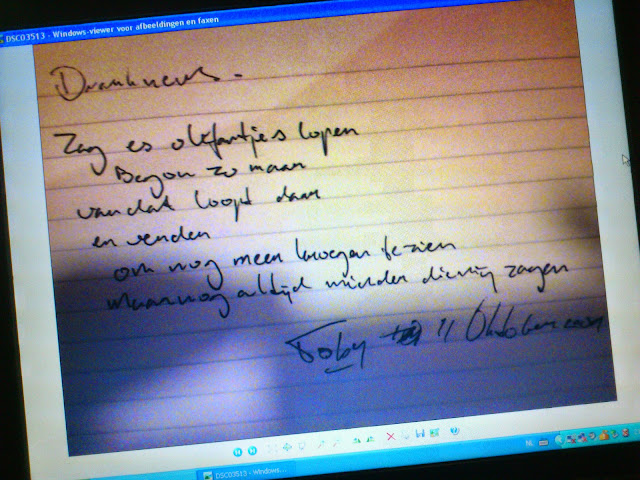 DSC03513 - Windows-viewer voor afbeeldingen en faxen
Drankneus.
Zag es olifantjes lopen
Begon zo maar
van dat loopt daar
en
om nog meer kroegen te zien
Maar nog altijd minder die wij zagen
Toby 11 Oktober
NL
DSC03513 - Windows...